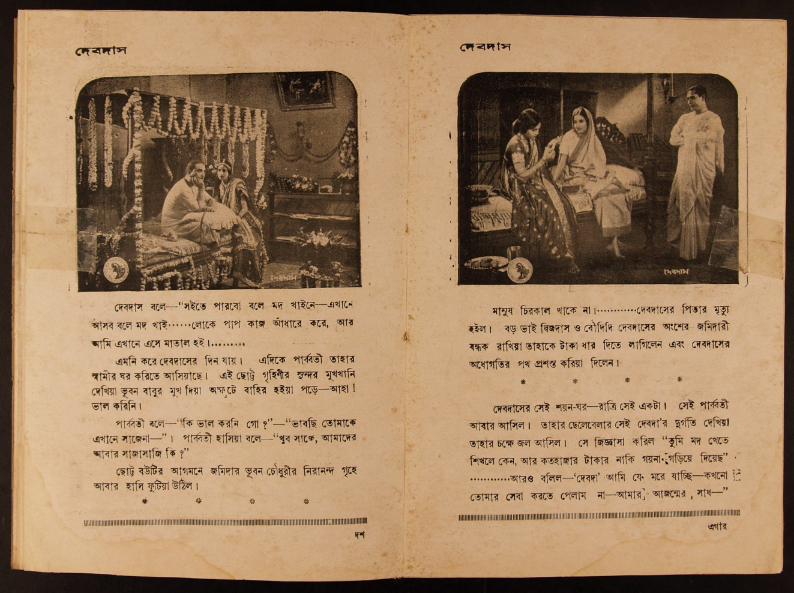 দেবদাস
দেবদাস
দেবদাস বলে—“সইতে পারবো বলে মদ খাইনে—এখানে
আসব বলে মদ খাই······লোকে পাপ কাজ আঁধারে করে, আর
আমি এখানে এসে মাতাল হই।·········
এমনি করে দেবদাসের দিন যায়। এদিকে পার্ব্বতী তাহার
স্বামীর ঘর করিতে আসিয়াছে। এই ছোট্ট গৃহিণীর সুন্দর মুখখানি
দেখিয়া ভুবন বাবুর মুখ দিয়া অস্ফুটে বাহির হইয়া পড়ে—আহা!
ভাল করিনি।
পার্ব্বতী বলে—“কি ভাল করনি গো?”—“ভাবছি তোমাকে
এখানে সাজেনা—”। পার্ব্বতী হাসিয়া বলে—“খুব সাজে, আমাদের
আবার সাজাসাজি কি?”
ছোট্ট বউটির আগমনে জমিদার ভুবন চৌধুরীর নিরানন্দ গৃহে
আবার হাসি ফুটিয়া উঠিল।
* * * *
দশ
দেবদাস
দেবদাস
মানুষ চিরকাল থাকে না।············দেবদাসের পিতার মৃত্যু
হইল। বড় ভাই দ্বিজদাস ও বৌদিদি দেবদাসের অংশের জমিদারী
বন্ধক রাখিয়া তাহাকে টাকা ধার দিতে লাগিলেন এবং দেবদাসের
অধোগতির পথ প্রশস্ত করিয়া দিলেন।
* * * *
দেবদাসের সেই শয়ন-ঘর—রাত্রি সেই একটা। সেই পার্ব্বতী
আবার আসিল। তাহার ছেলেবেলার সেই দেবদা'র দুর্গতি দেখিয়া
তাহার চক্ষে জল আসিল। সে জিজ্ঞাসা করিল “তুমি মদ খেতে
শিখলে কেন, আর কতহাজার টাকার নাকি গয়না গড়িয়ে দিয়েছ”
············আরও বলিল—‘দেবদা’ আমি যে মরে যাচ্ছি—কখনো
তোমার সেবা করতে পেলাম না—আমার আজন্মের, সাধ—”
এগার